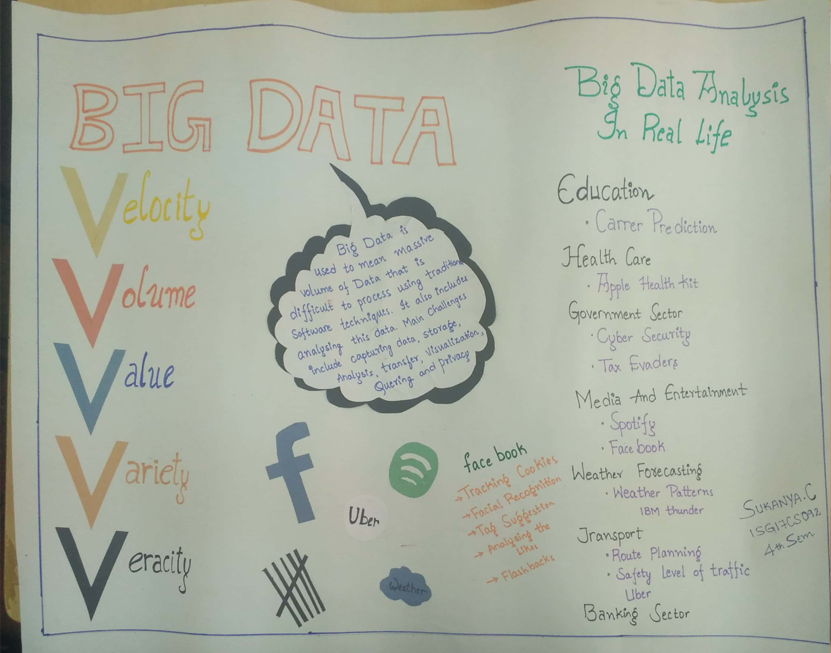 BIG DATA
Velocity
Volume
Value
Variety
Veracity
Big Data is
used to mean massive
volume of Data that is
difficult to process using tradition
Software techniques. It also includes
analysing this data. Main Challenges
include capturing data, storage,
Analysis, transfer, visualization,
Quering and privacy
f
Uber
Weather
face book
→Tracking Cookies
→Facial Recognition
→Tag Suggestion
→Analysing the
Likes
→Flashbacks
Big Data Analysis
In Real Life
Education
• Carrer Prediction
Health Care
• Apple Health kit
Government Sector
• Cyber Security
• Tax Evaders
Media And Entertainment
• Spotify
• Facebook
Weather Forecasting
• Weather Patterns
IBM thunder
Transport
• Route Planning
• Safety level of traffic
Uber
Banking Sector
SUKANYA.C
1SG17CS092
4th Sem